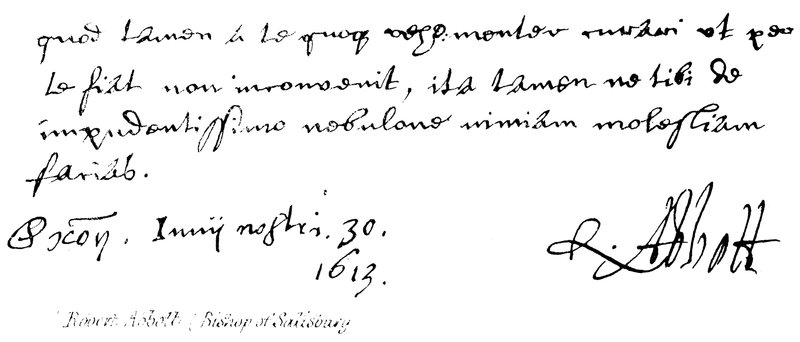 quod tamen a te quoq vehementer curari ut per
te fiat non inconvenit, ita tamen ne tibi de
impudentissimo nebulone nimiam molestiam
facias.
Oxon. Junij nostri. 30. R. Abbott
1613.
Robert Abbott (Bishop of Salisbury